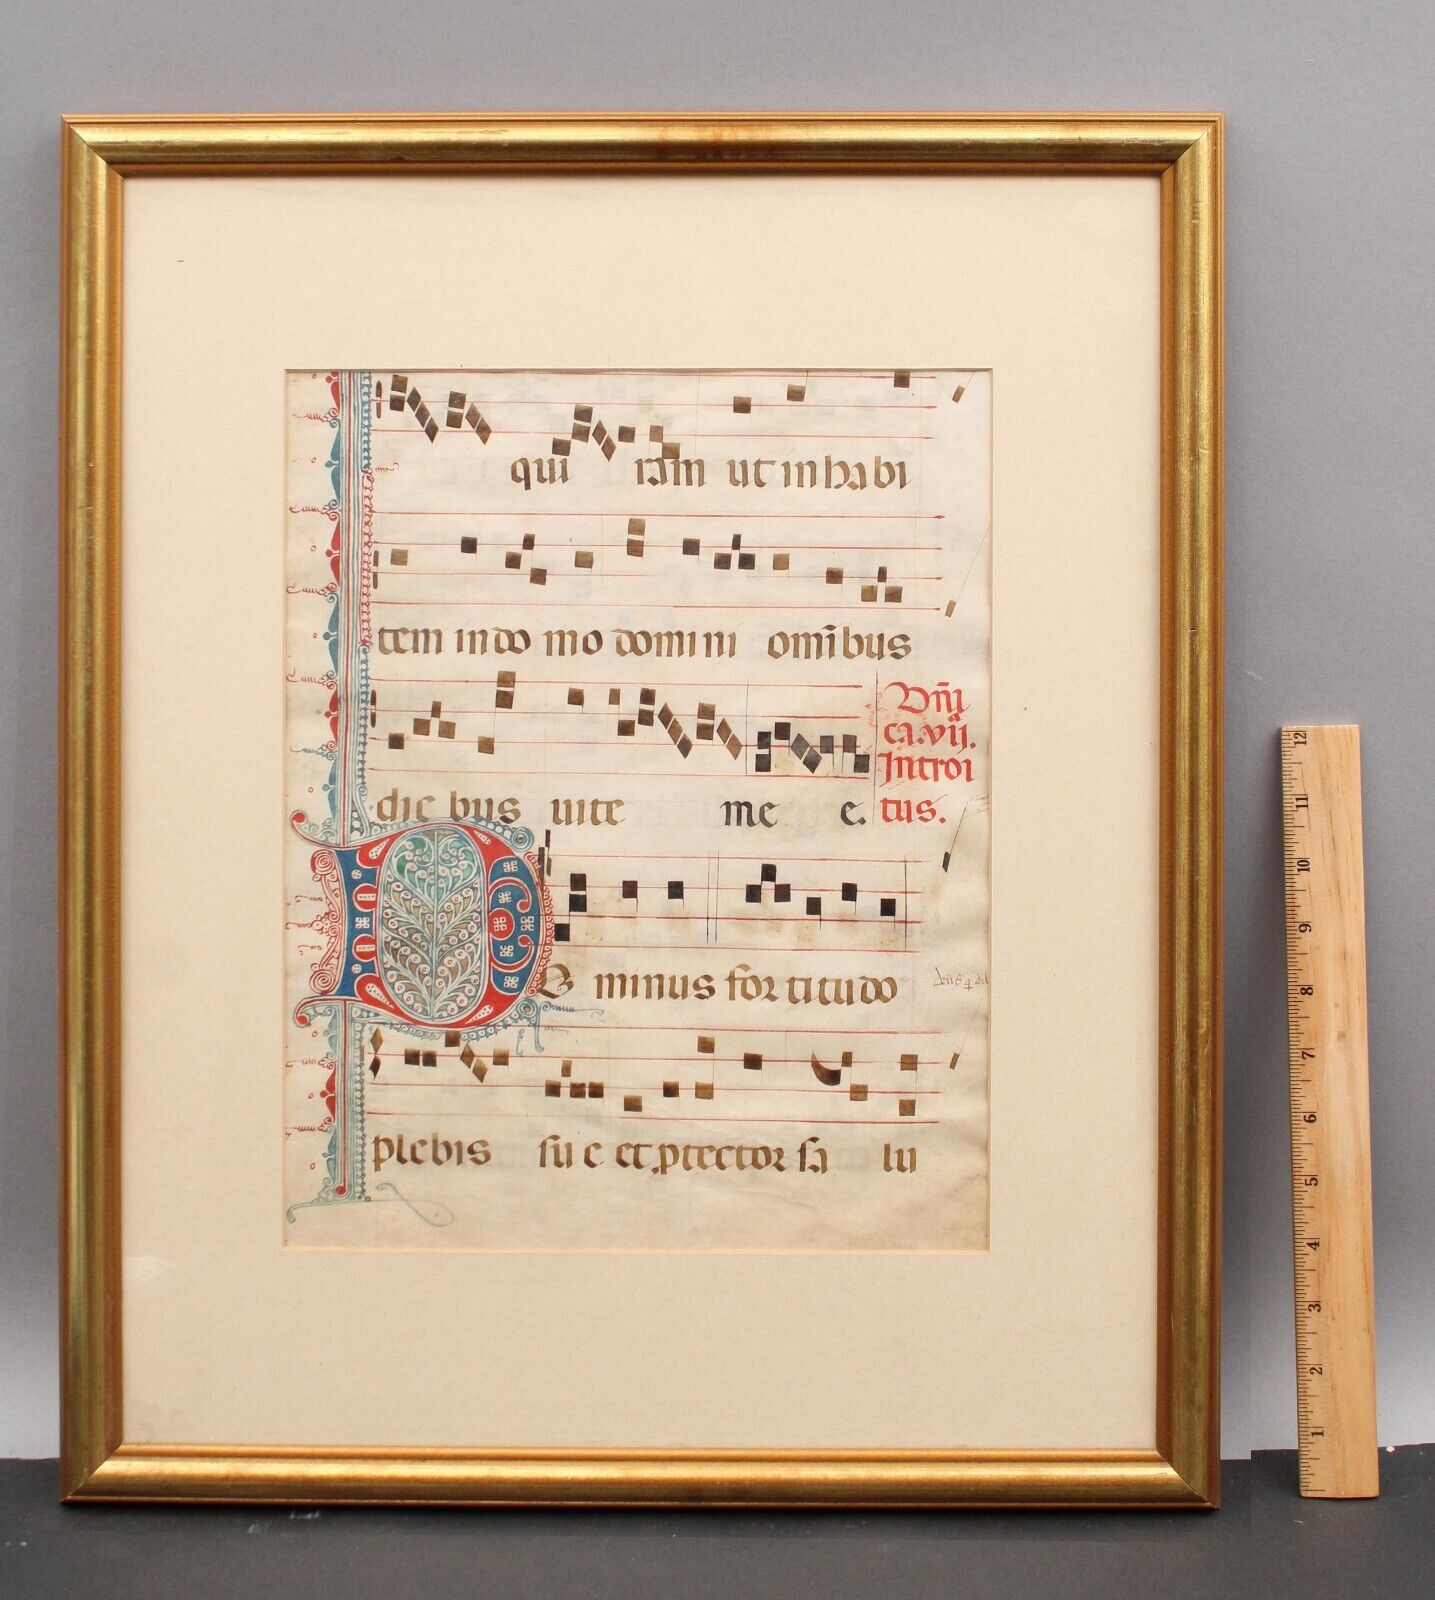 qui ram ut inhabi
tem in do mo domini omībus
die bus uite me e.
Dn̄i
ca. vij.
Introi
tus.
D O minus fortitudo
plebis sue et ꝓtector sa lu
12
11
10
9
8
7
6
5
4
3
2
1